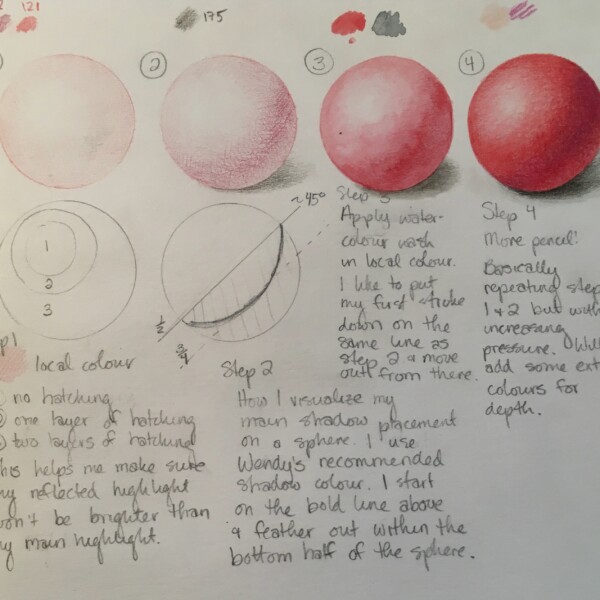 121
175
2
3
4
1
2
3
~45°
1/2
3/4
local colour
no hatching
one layer of hatching
two layers of hatching
helps me make sure
reflected highlight
be brighter than
main highlight.
Step 2
How I visualize my
main shadow placement
on a sphere. I use
Wendy's recommended
shadow colour. I start
on the bold line above
& feather out within the
bottom half of the sphere.
Step 3
Apply water-
colour wash
in local colour.
I like to put
my first stroke
down on the
same line as
step 2 & move
out from there.
Step 4
More pencil!
Basically
repeating step
1 & 2 but with
increasing
pressure.
add some
colours for
depth.